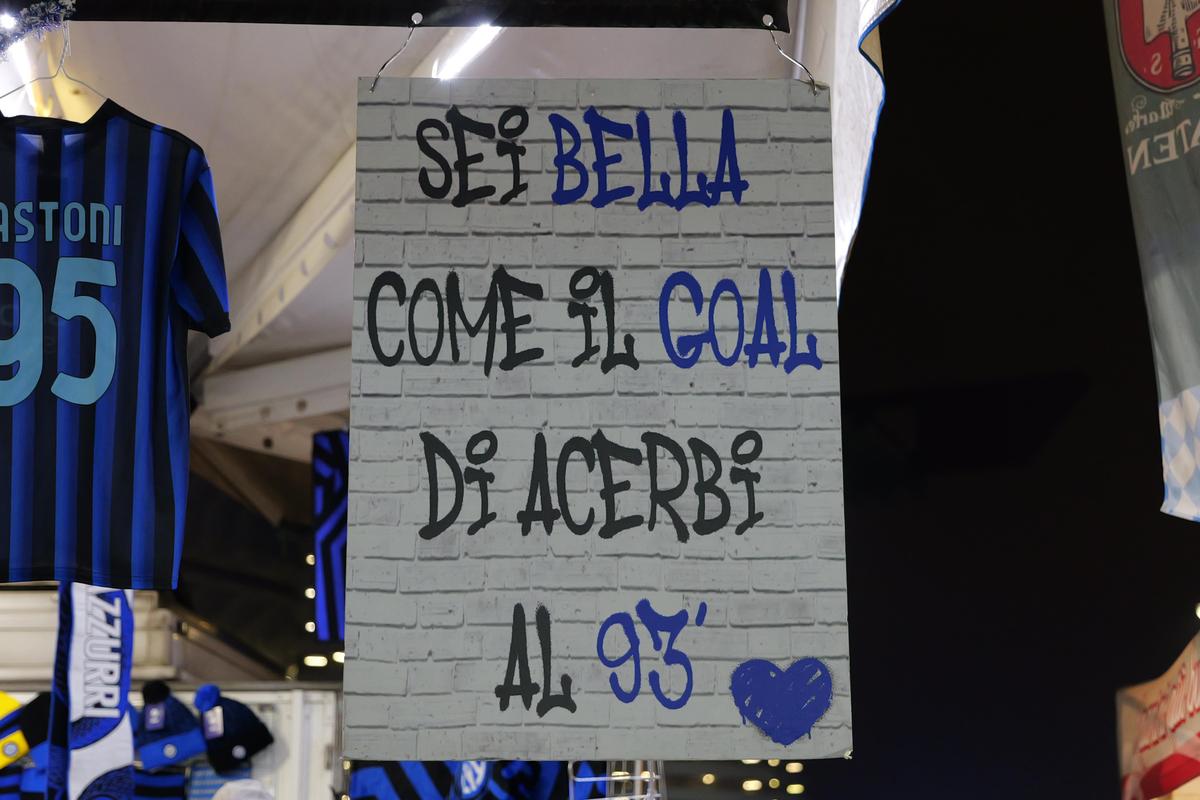 SEI BELLA
COME IL GOAL
DI ACERBI
AL 93'
ASTONI
95
ZZURRI